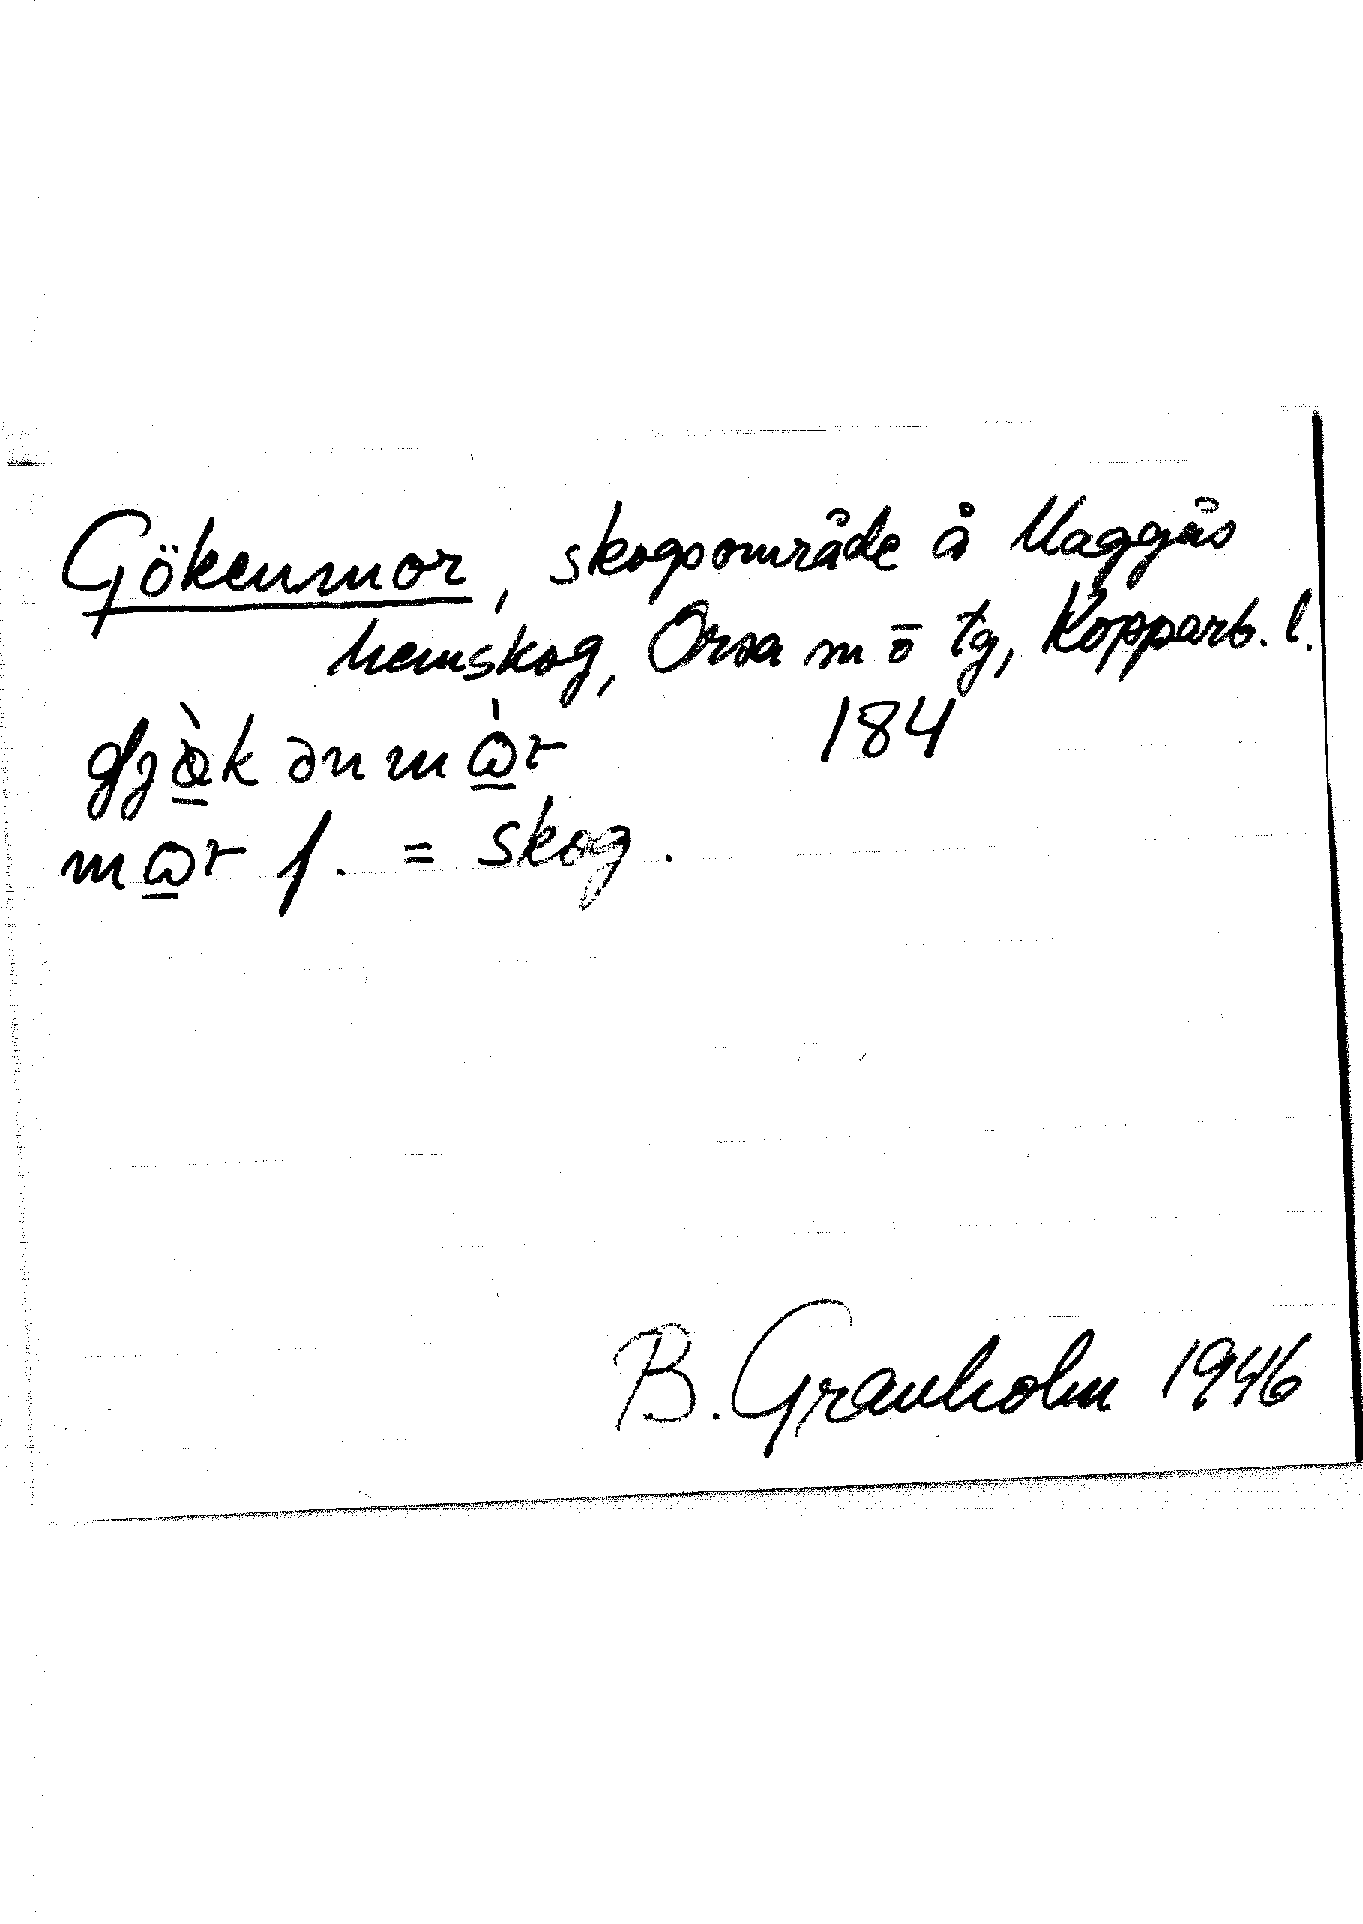 Gökenmor, skogsområde å Maggås
hemskog, Orsa m o tg, Kopparb. l.
184
m f. = skog.
B. Granholm 1946